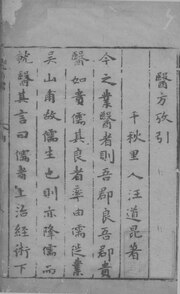 醫方攷引
千秋里人汪道昆著
今之業醫者則吾郡良吾郡貴
醫如貴儒其良者率由儒徙業
吳山甫故儒生也則亦降儒而
就醫其言曰儒者上治經術下